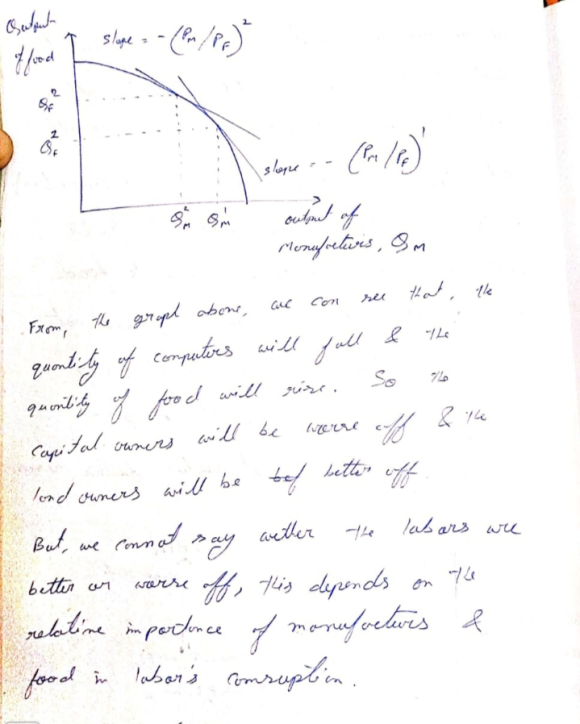 Output
of food
slope = - (PM/PF)²
QF²
QF²
slope = - (PM/PF)¹
QM² QM¹
output of
Manufacturers, QM
From, the graph above, we can see that, the
quantity of computers will fall & the
quantity of food will rise. So the
capital owners will be worse off & the
land owners will be better off
But, we cannot say wether the labars are
better or worse off, this depends on the
relative importance of manufacturs &
food in labar's comsuption.